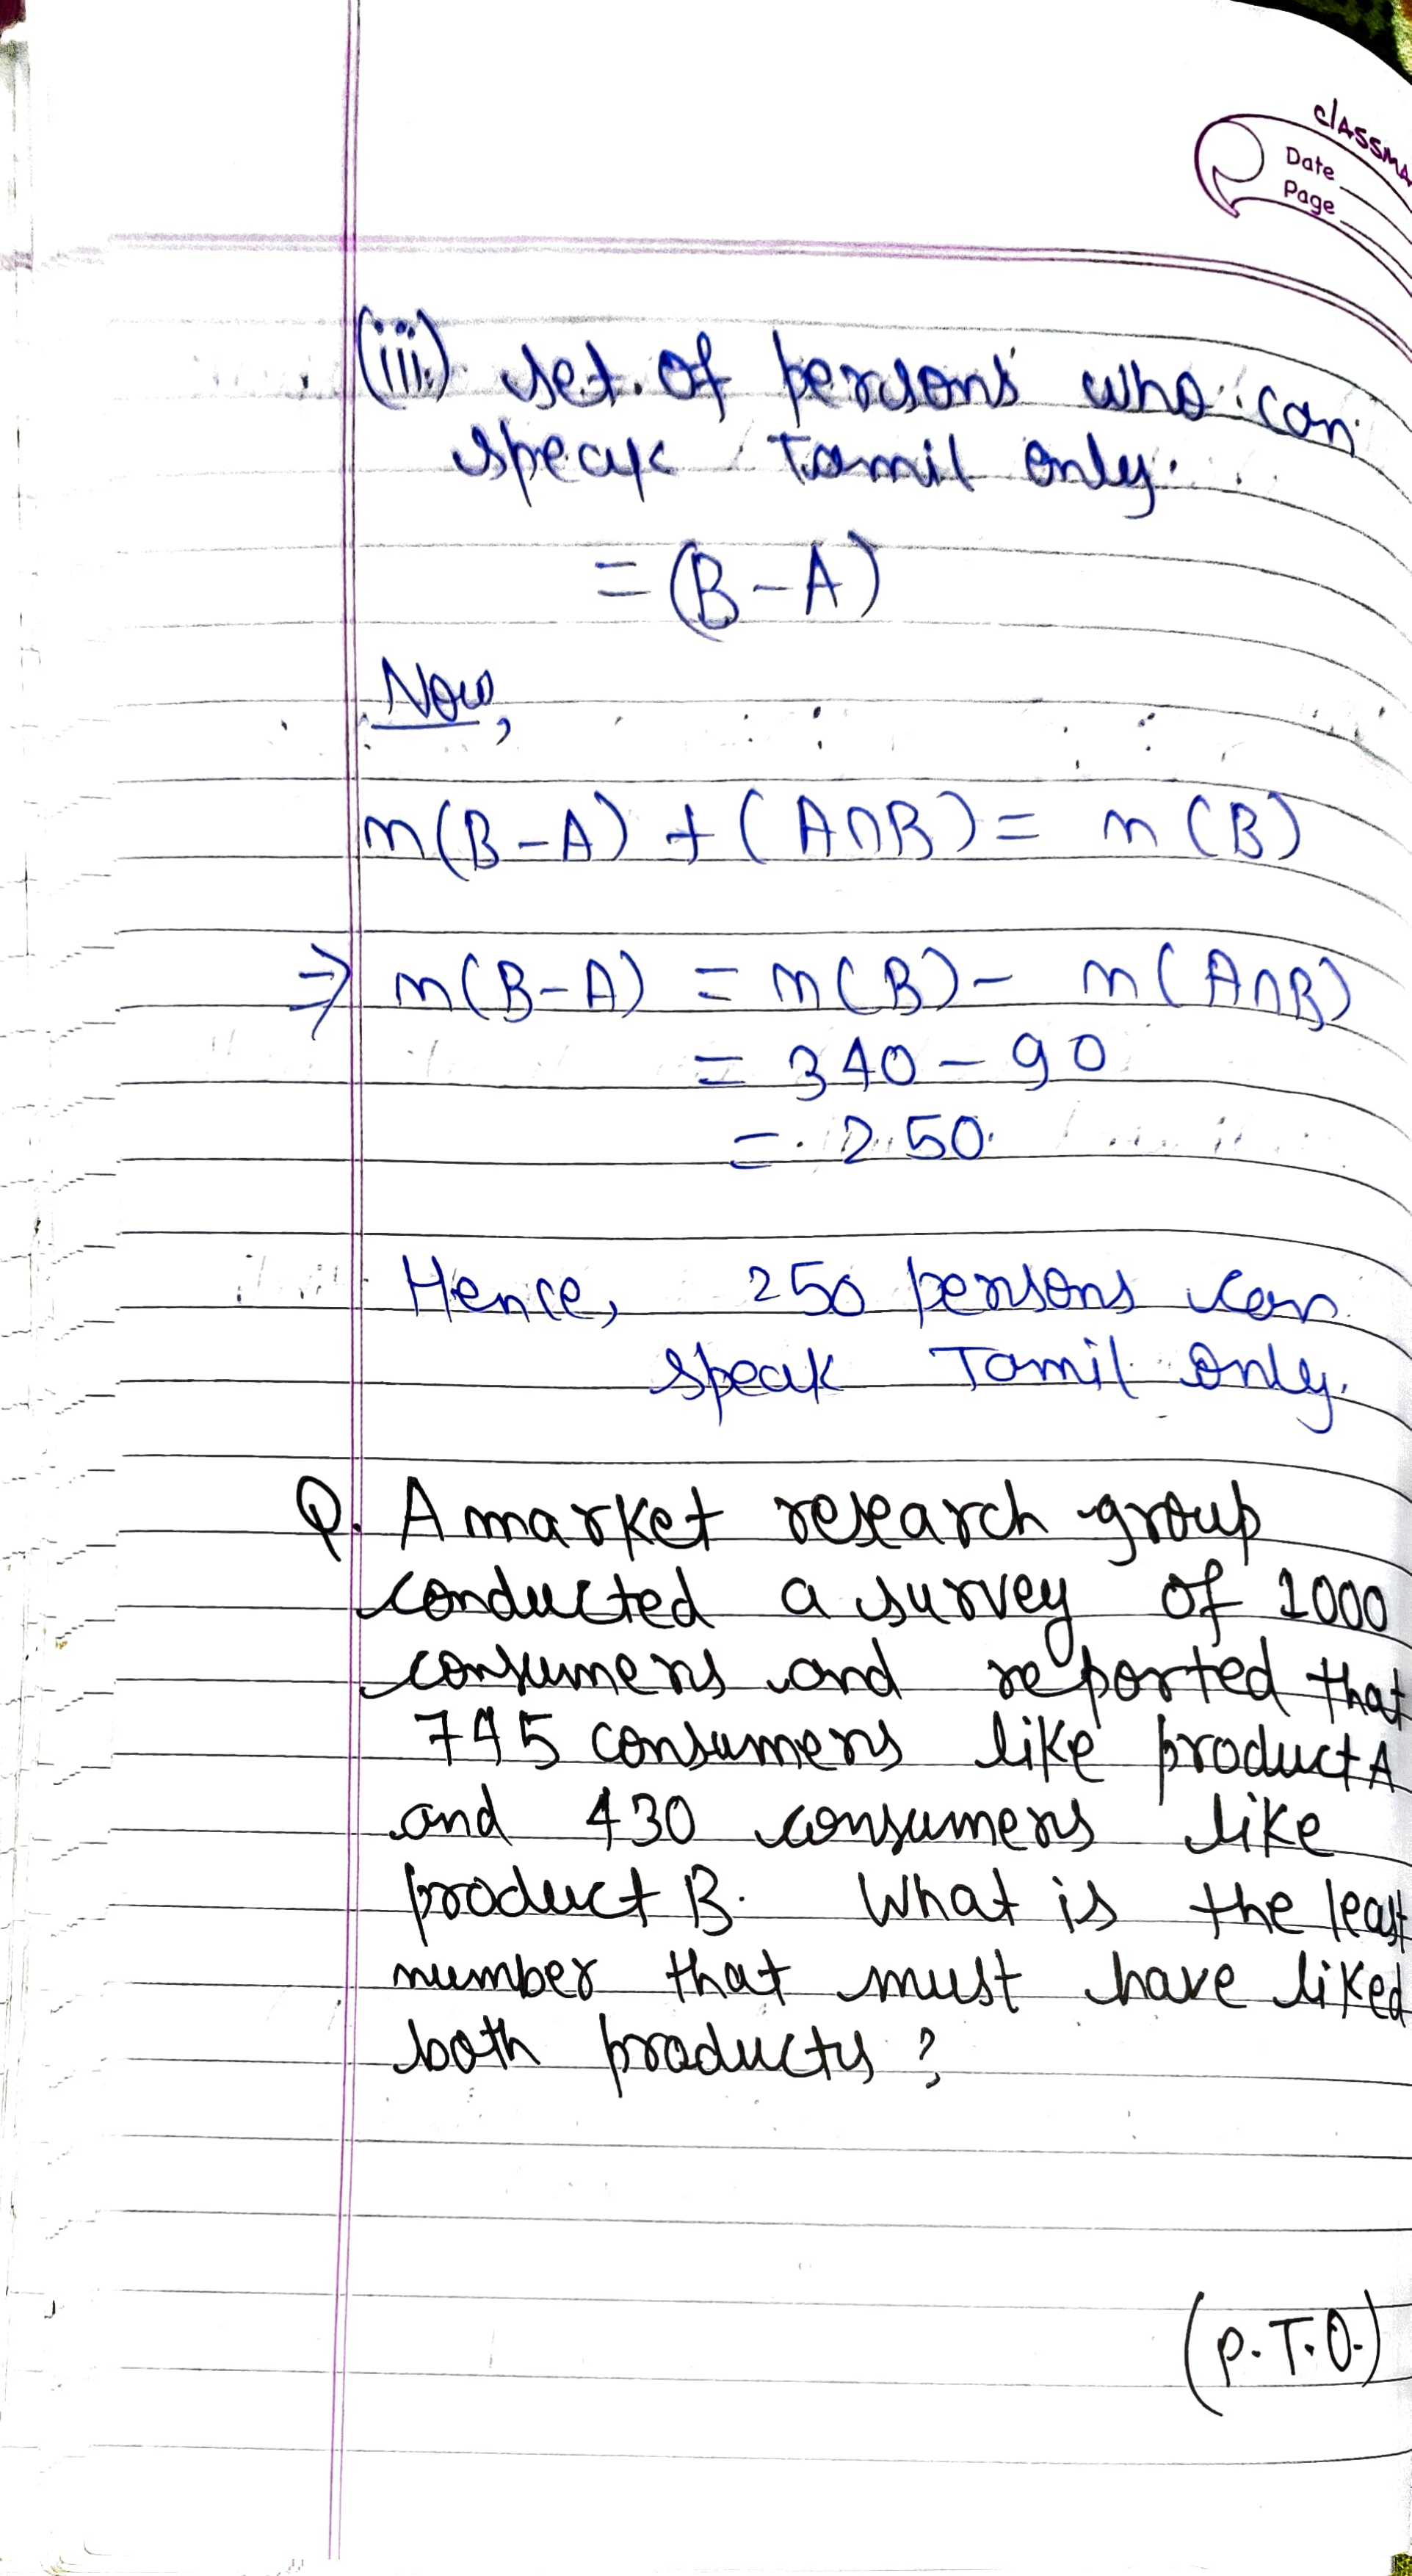 classma
Date
Page
(iii) set of persons who can
speak Tamil only.
= (B-A)
Now,
n(B-A) + (A∩B) = n(B)
⇒ n(B-A) = n(B) - n(A∩B)
= 340 - 90
= 250
Hence, 250 persons can
speak Tamil only.
Q. A market research group
conducted a survey of 1000
consumers and reported that
745 consumers like product A
and 430 consumers like
product B. What is the least
number that must have liked
both products?
(P.T.O.)